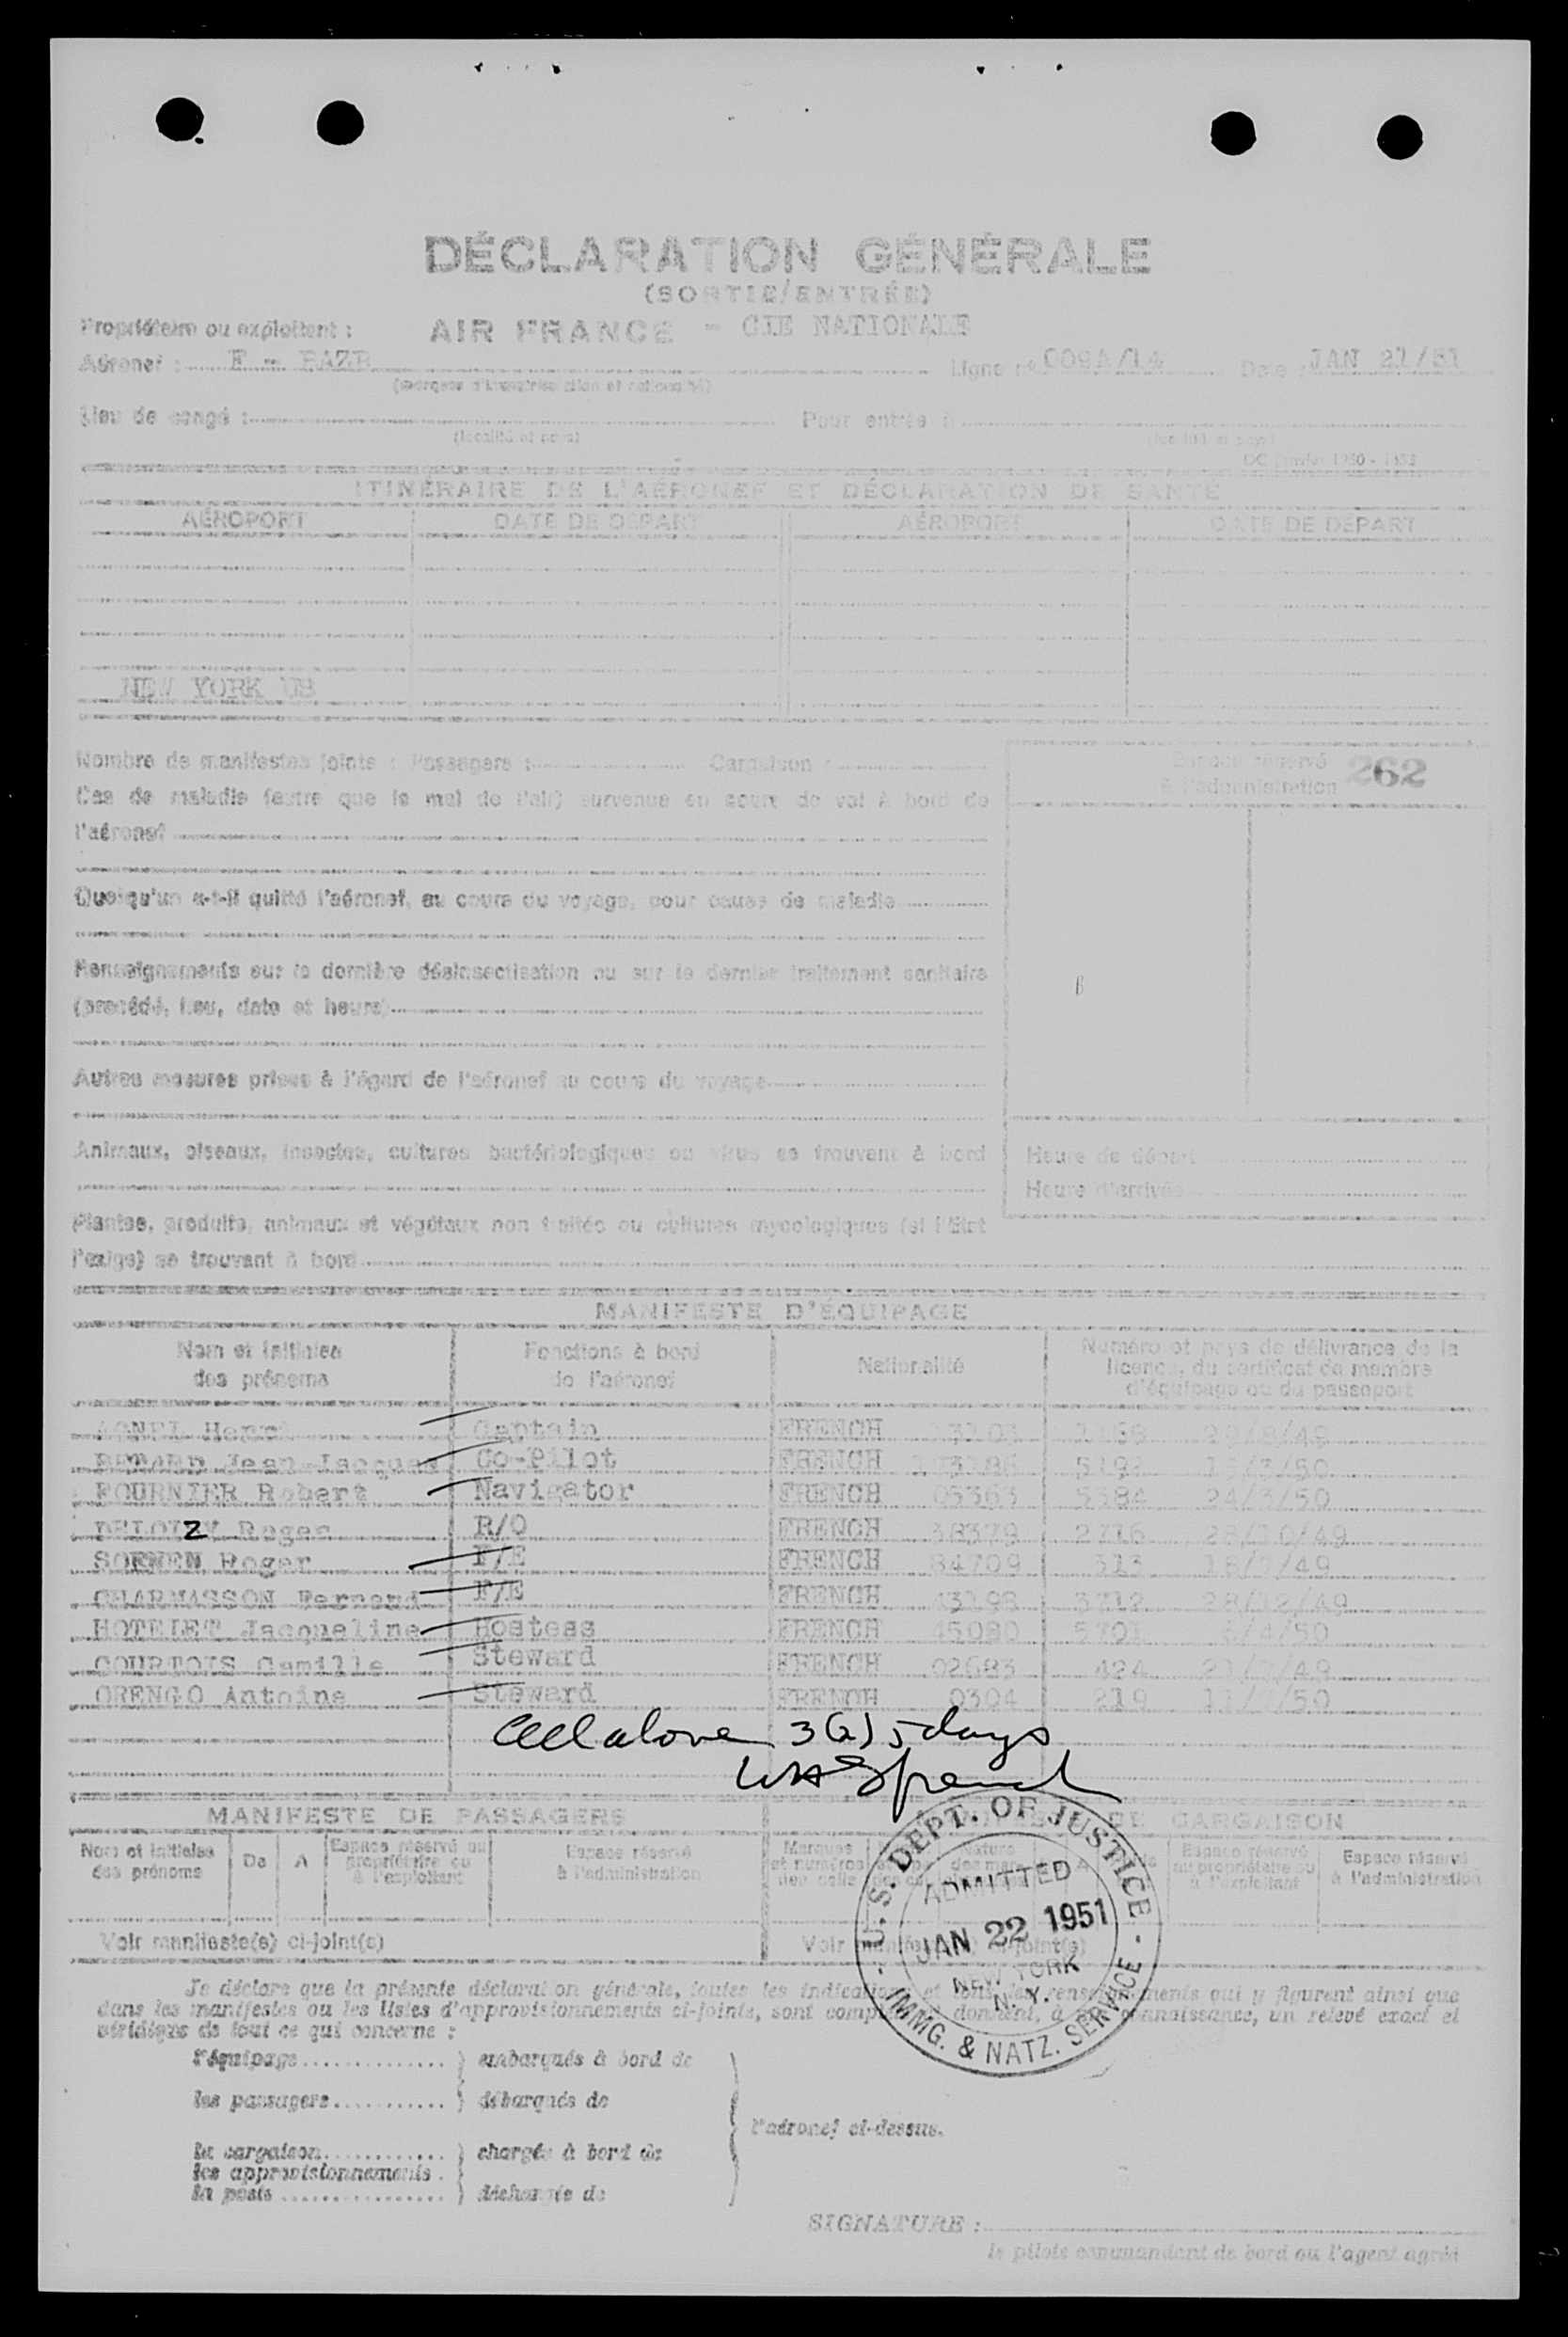 DÉCLARATION GÉNÉRALE
(SORTIE/ENTRÉE)
Propriétaire ou exploitant : AIR FRANCE - CIE NATIONALE
Aéronef : F - BAZB Ligne n° 009A/14 Date : JAN 21/51
(marques d'immatriculation et nationalité)
Lieu de congé : Pour entrée à
(localité et pays) (localité et pays)
ITINÉRAIRE DE L'AÉRONEF ET DÉCLARATION DE SANTÉ
AÉROPORT DATE DE DÉPART AÉROPORT DATE DE DÉPART
NEW YORK US
Nombre de manifestes joints : Passagers : Cargaison :
Espace réservé
à l'administration 262
Cas de maladie (autre que le mal de l'air) survenue en cours de vol à bord de
l'aéronef
Quelqu'un a-t-il quitté l'aéronef, au cours du voyage, pour cause de maladie
Renseignements sur la dernière désinsectisation ou sur le dernier traitement sanitaire
(procédé, lieu, date et heure)
Autres mesures prises à l'égard de l'aéronef au cours du voyage
Animaux, oiseaux, insectes, cultures bactériologiques ou virus se trouvant à bord
Heure de départ
Heure d'arrivée
Plantes, produits, animaux et végétaux non traités ou cultures mycologiques (si l'Etat
l'exige) se trouvant à bord
MANIFESTE D'ÉQUIPAGE
Nom et initiales des prénoms
Fonctions à bord de l'aéronef
Nationalité
Numéro et pays de délivrance de la licence, du certificat de membre d'équipage ou du passeport
Captain FRENCH
Jean-Jacques Co-Pilot FRENCH
FOURNIER Robert Navigator FRENCH 5384 24/3/50
Roger R/O FRENCH 38379 2716 28/10/49
SORMEN Roger F/E FRENCH 84709 313
CHARMASSON Fernand F/E FRENCH 3712 28/12/49
HOTELET Jacqueline Hostess FRENCH 45080
COURTOIS Camille Steward FRENCH 02683 424
ORENGO Antoine Steward FRENCH 0304 219
All above 3(2) 5 days
MANIFESTE DE PASSAGERS DE CARGAISON
Nom et initiales des prénoms
De
A
Espace réservé au propriétaire ou à l'exploitant
Espace réservé à l'administration
Marques et numéros des colis
Nature
Espace réservé au propriétaire ou à l'exploitant
Espace réservé à l'administration
Voir manifeste(s) ci-joint(s) Voir manifeste(s) ci-joint(s)
U.S. DEPT. OF JUSTICE
ADMITTED
JAN 22 1951
NEW YORK
N.Y.
IMMG. & NATZ. SERVICE
Je déclare que la présente déclaration générale, toutes les indications et tous les renseignements qui y figurent ainsi que
dans les manifestes ou les listes d'approvisionnements ci-joints, sont complets et donnent, à ma connaissance, un relevé exact et
véridique de tout ce qui concerne :
l'équipage } embarqués à bord de
les passagers } débarqués de
l'aéronef ci-dessus.
la cargaison } chargés à bord de
les approvisionnements
la poste } déchargés de
SIGNATURE :
le pilote commandant de bord ou l'agent agréé